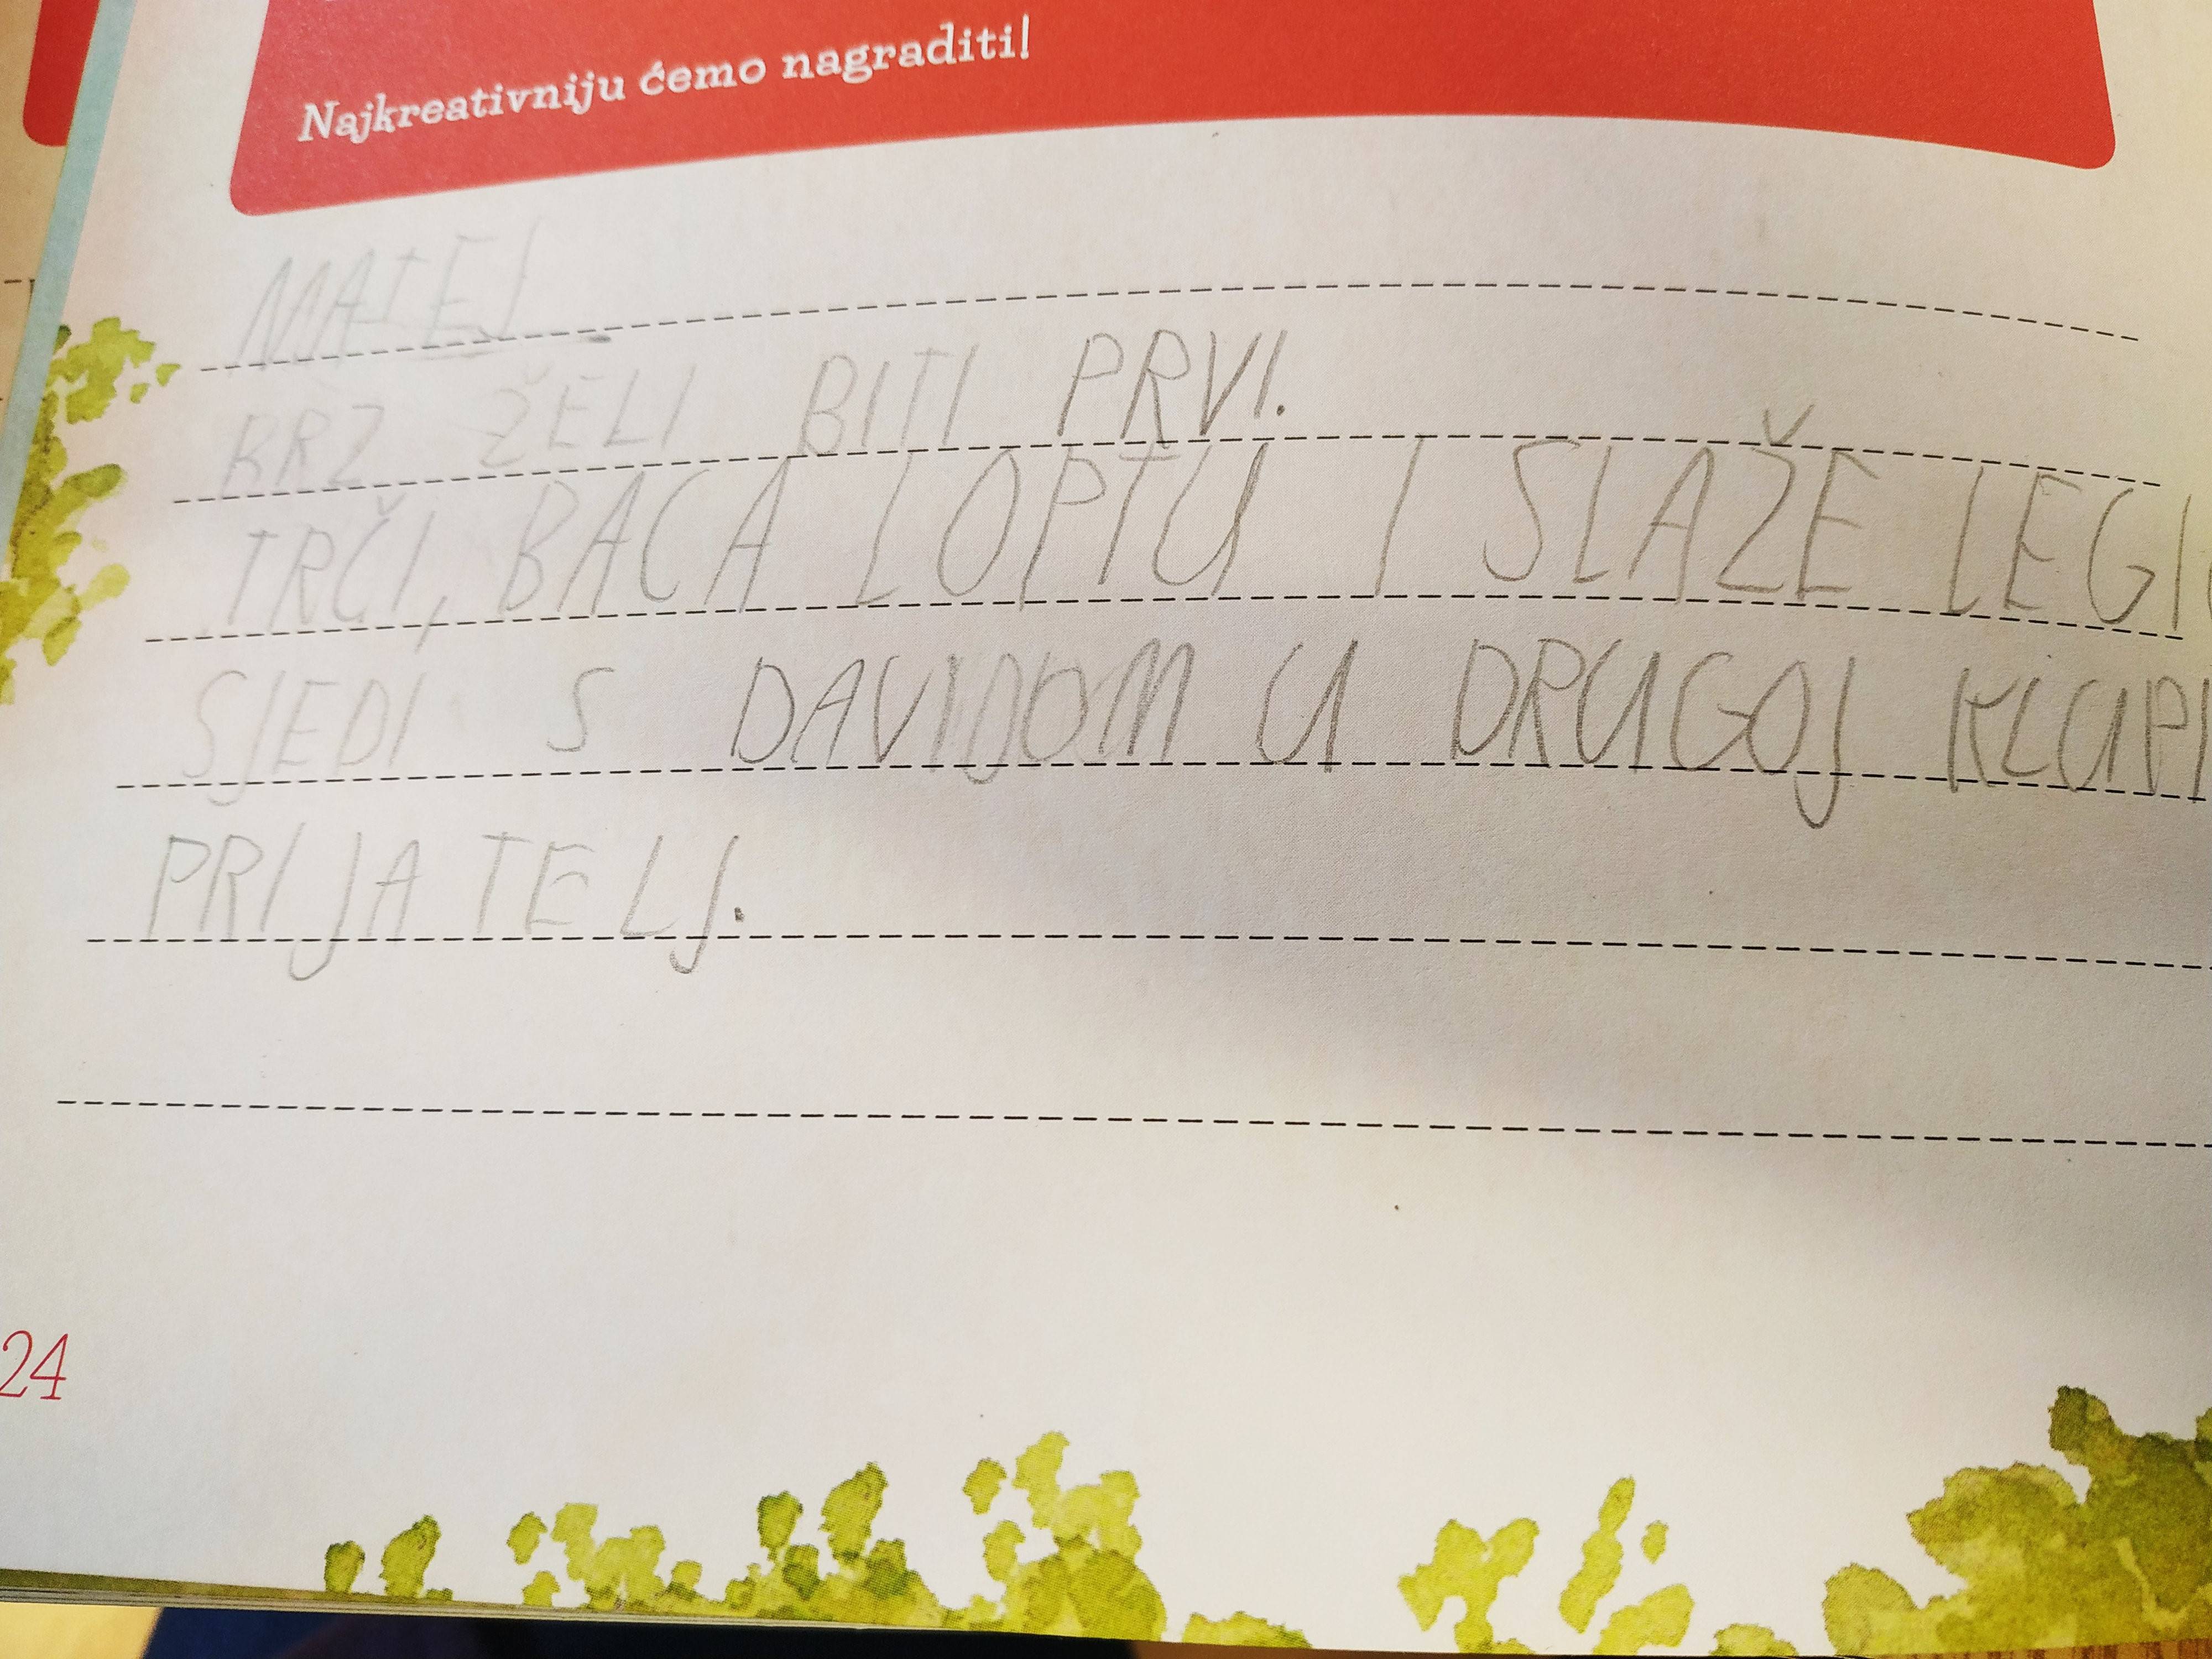 Najkreativniju ćemo nagraditi!
MATEJ
BRZ ŽELI BITI PRVI.
TRČI, BACA LOPTU I SLAŽE
SJEDI S DAVIDOM U DRUGOJ
PRIJATELJ.
24